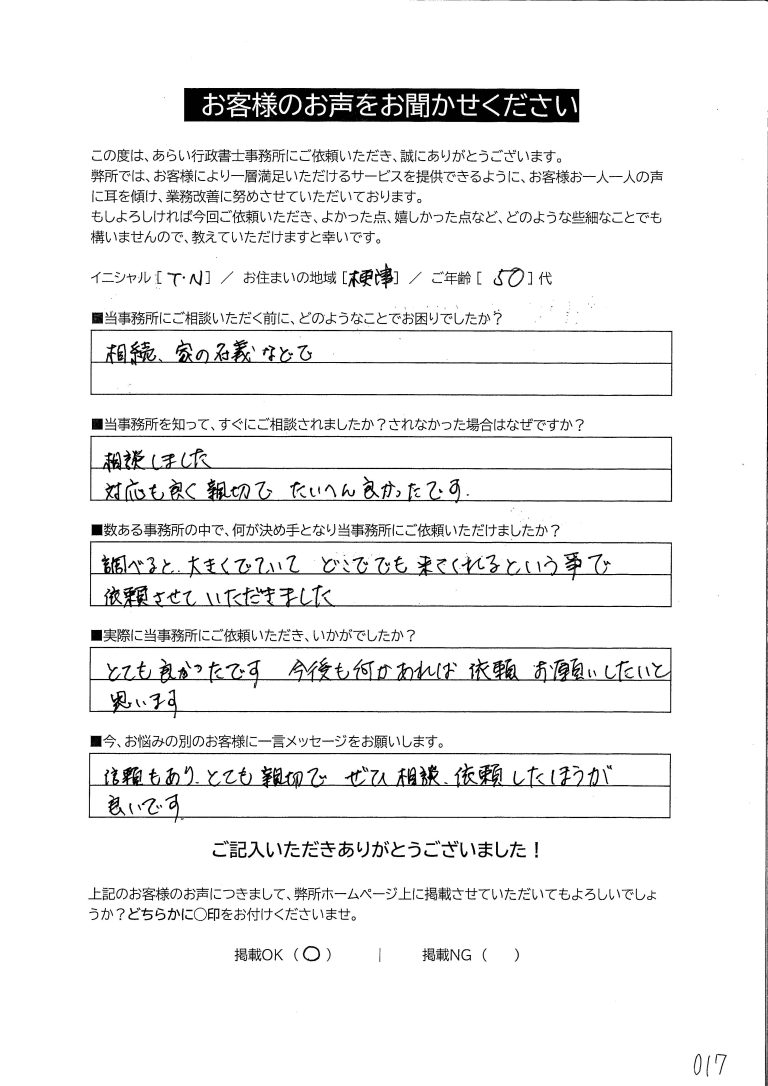 お客様のお声をお聞かせください
この度は、あらい行政書士事務所にご依頼いただき、誠にありがとうございます。
弊所では、お客様により一層満足いただけるサービスを提供できるように、お客様お一人一人の声
に耳を傾け、業務改善に努めさせていただいております。
もしよろしければ今回ご依頼いただき、よかった点、嬉しかった点など、どのような些細なことでも
構いませんので、教えていただけますと幸いです。
イニシャル [ T・N ] ／ お住まいの地域 [ ] ／ ご年齢 [ 50 ] 代
■当事務所にご相談いただく前に、どのようなことでお困りでしたか？
相続、家の名義などで
■当事務所を知って、すぐにご相談されましたか？されなかった場合はなぜですか？
相談しました
対応も良く親切で たいへん良かったです.
■数ある事務所の中で、何が決め手となり当事務所にご依頼いただけましたか？
調べると、大きくでていて どこででも来てくれるという事で
依頼させていただきました
■実際に当事務所にご依頼いただき、いかがでしたか？
とても良かったです 今後も何かあれば 依頼 お願いしたいと
思います
■今、お悩みの別のお客様に一言メッセージをお願いします。
信頼もあり、とても親切で ぜひ相談、依頼したほうが
良いです.
ご記入いただきありがとうございました！
上記のお客様のお声につきまして、弊所ホームページ上に掲載させていただいてもよろしいでしょ
うか？どちらかに○印をお付けくださいませ。
掲載OK （ ○ ） | 掲載NG （ ）
017